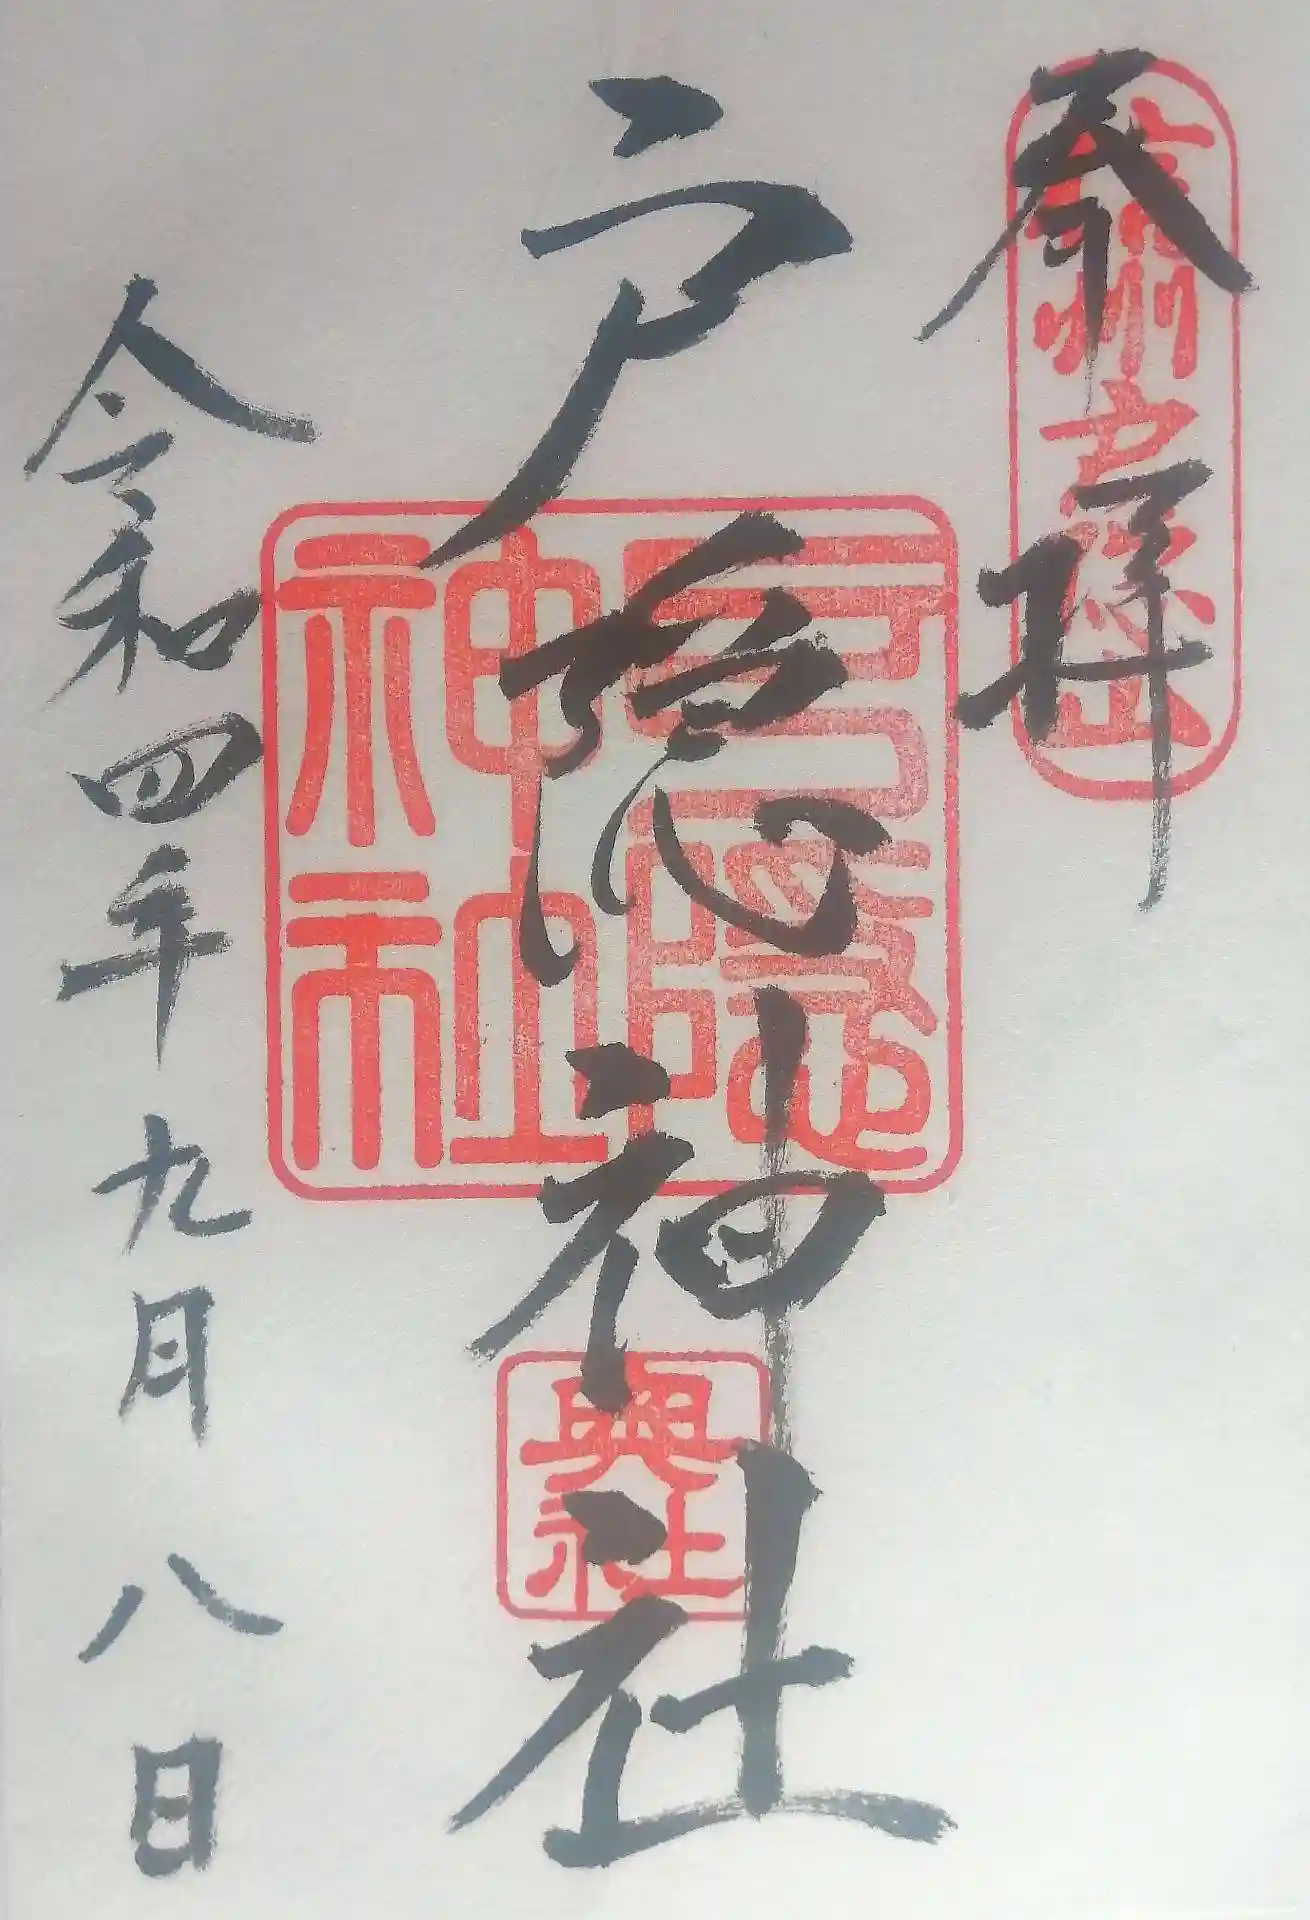 奉拝
信州戸隠山
戸隠神社
戸隠
神社
奥社
令和四年九月八日